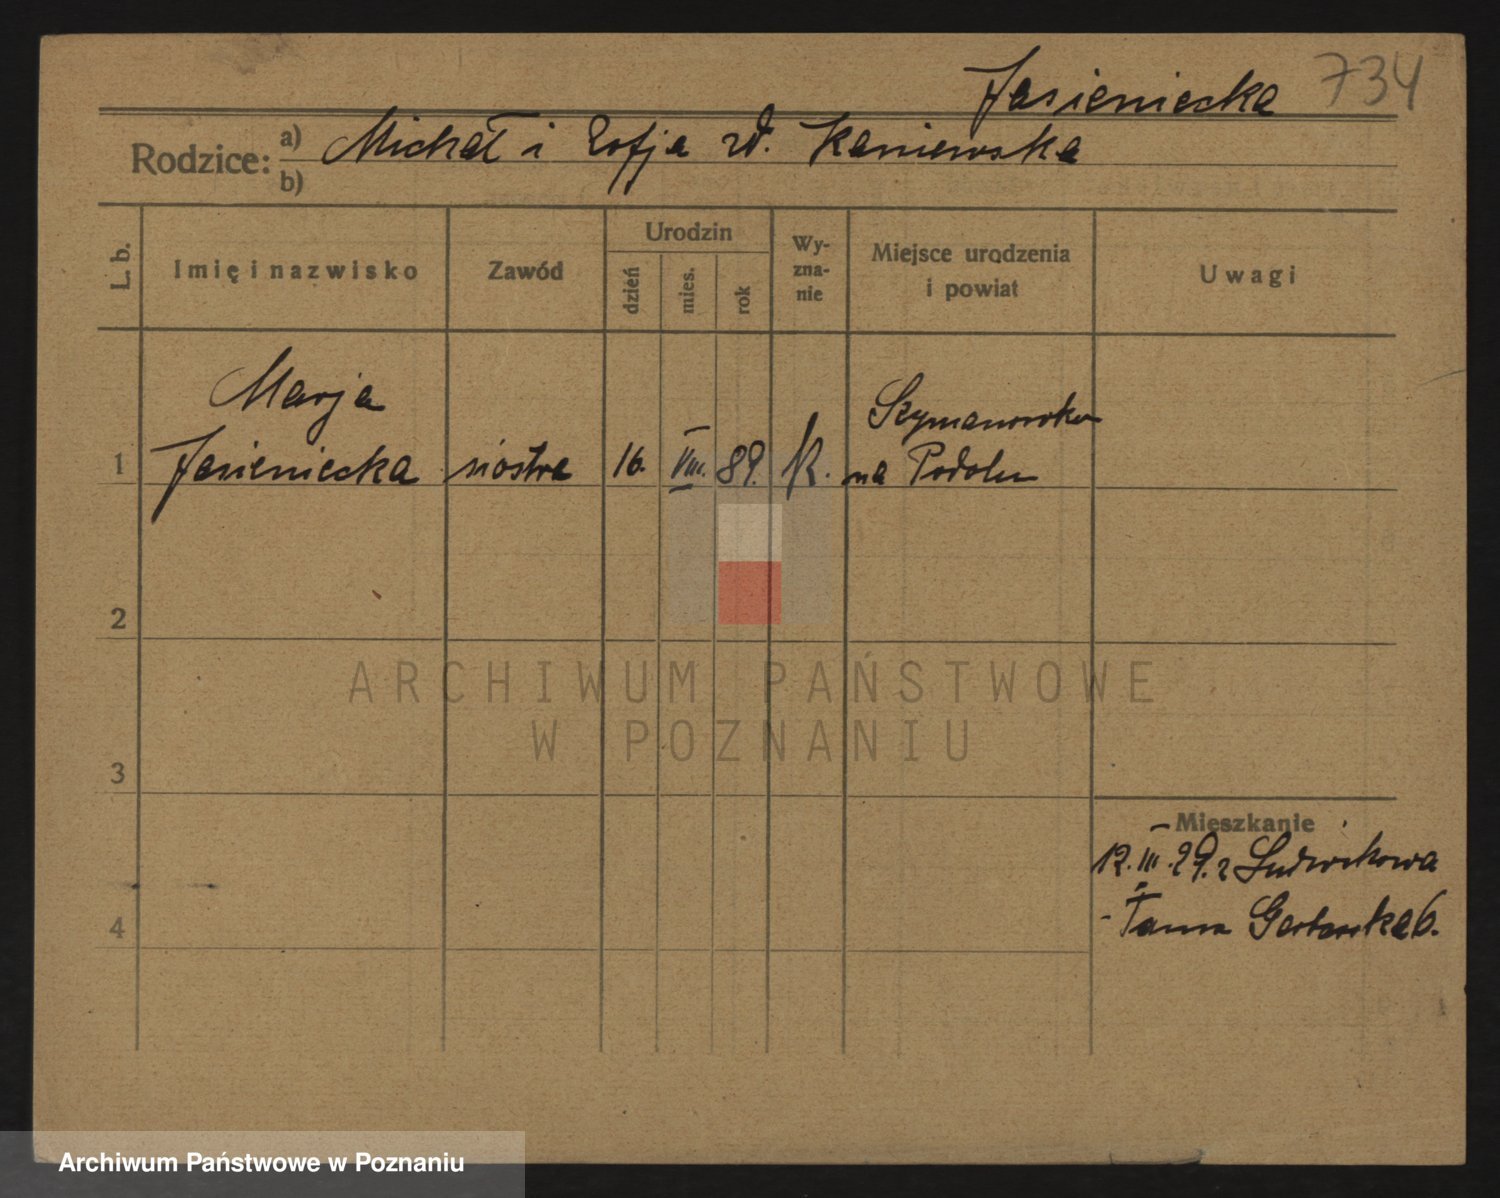 Jasieniecka 734
Rodzice: a) Michał i Zofja zd. Kaniewska
b)
L. b. Imię i nazwisko Zawód Urodzin dzień mies. rok Wyznanie Miejsce urodzenia i powiat Uwagi
Marja Szymanowka
1 Jasieniecka siostra 16. VIII. 89. K. na Podolu
2
3
4
Mieszkanie
12. III. 29. z Ludwikowa
- Garbarska 6.
ARCHIWUM PAŃSTWOWE
W POZNANIU
Archiwum Państwowe w Poznaniu